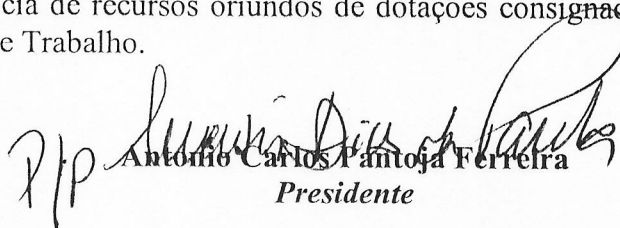 cia de recursos oriundos de dotações consignad
e Trabalho.
P/P
Antonio Carlos Pantoja Ferreira
Presidente